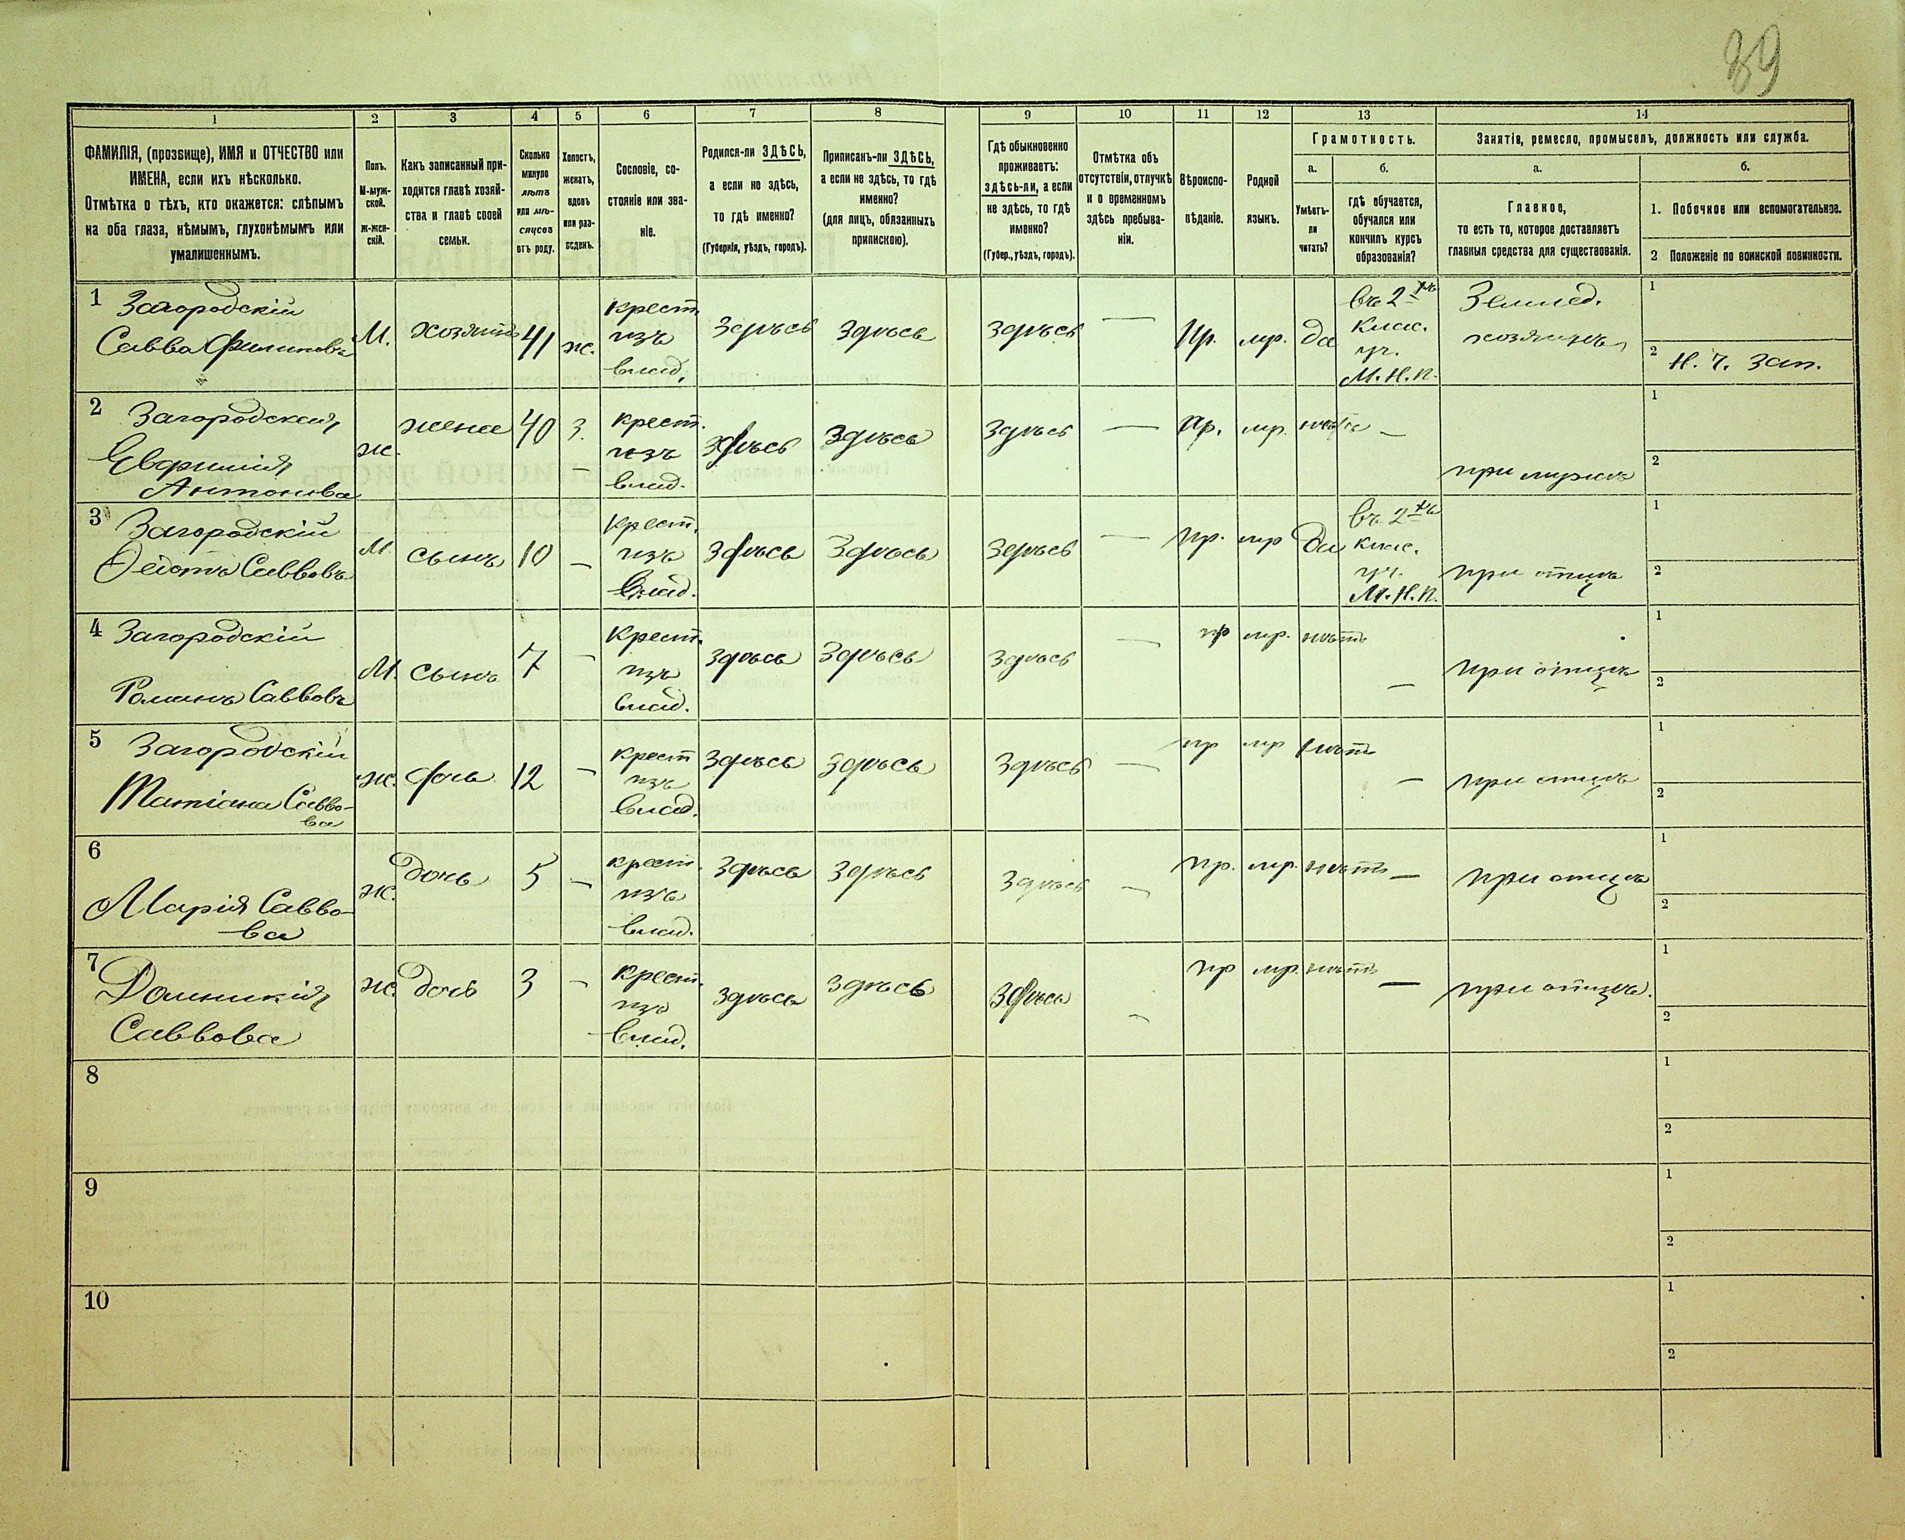 89
1 2 3 4 5 6 7 8 9 10 11 12 13 14
ФАМИЛІЯ, (прозвище), ИМЯ и ОТЧЕСТВО или
ИМЕНА, если ихъ нѣсколько.
Отмѣтка о тѣхъ, кто окажется: слѣпымъ
на оба глаза, нѣмымъ, глухонѣмымъ или
умалишеннымъ.
Полъ.
М-муж-
ской.
ж-жен-
скій.
Какъ записанный при-
ходится главѣ хозяй-
ства и главѣ своей
семьи.
Сколько
минуло
лѣтъ
или мѣ-
сяцевъ
отъ роду.
Холостъ,
женатъ,
вдовъ
или раз-
веденъ.
Сословіе, со-
стояніе или зва-
ніе.
Родился-ли ЗДѢСЬ,
а если не здѣсь,
то гдѣ именно?
(Губернія, уѣздъ, городъ).
Приписанъ-ли ЗДѢСЬ,
а если не здѣсь, то гдѣ
именно?
(для лицъ, обязанныхъ
припискою).
Гдѣ обыкновенно
проживаетъ:
здѣсь-ли, а если
не здѣсь, то гдѣ
именно?
(Губер., уѣздъ, городъ).
Отмѣтка объ
отсутствіи, отлучкѣ
и о временномъ
здѣсь пребыва-
ніи.
Вѣроиспо-
вѣданіе.
Родной
языкъ.
Грамотность.
а.
Умѣетъ-
ли
читать?
б.
гдѣ обучается,
обучался или
кончилъ курсъ
образованія?
Занятія, ремесло, промыселъ, должность или служба.
а.
Главное,
то есть то, которое доставляетъ
главныя средства для существованія.
б.
1. Побочное или вспомогательное.
2 Положеніе по воинской повинности.
1 Загородскій
Савва Филиповъ
М.
хозяинъ
41
ж.
крест.
изъ
влад.
Здѣсь
Здѣсь
Здѣсь
—
Пр.
мр.
да
въ 2-хъ
клас.
уч.
М.Н.П.
Землед.
хозяинъ
1
2 Н. Ч. Зап.
2 Загородская
Евфимія
Антонова
ж.
жена
40
З.
—
крест.
изъ
влад.
здѣсь
Здѣсь
Здѣсь
—
Пр.
мр.
нѣтъ
—
при мужѣ
1
2
3 Загородскій
Ѳеіотъ Саввовъ
М
сынъ
10
—
Крест.
изъ
Влад.
Здѣсь
Здѣсь
Здѣсь
—
Пр.
мр
да
въ 2-хъ
клас.
уч.
М.Н.П.
при отцѣ
1
2
4 Загородскій
Романъ Саввовъ
М.
сынъ
7
—
Крест.
изъ
влад.
здѣсь
Здѣсь
здѣсь
—
пр
мр.
нѣтъ
—
при отцѣ
1
2
5 Загородскій
Татіана Савво-
ва
ж.
дочь
12
—
крест
изъ
влад.
здѣсь
здѣсь
Здѣсь
—
пр
мр
нѣтъ
—
при отцѣ
1
2
6
Марія Савво-
ва
ж.
дочь
5
—
крест.
изъ
влад.
Здѣсь
Здѣсь
Здѣсь
—
пр.
мр.
нѣтъ
—
при отцѣ
1
2
7
Доминикія
Саввова
ж.
дочь
3
—
крест.
изъ
влад.
здѣсь
здѣсь
здѣсь
—
пр
мр.
нѣтъ
—
при отцѣ.
1
2
8
1
2
9
1
2
10
1
2